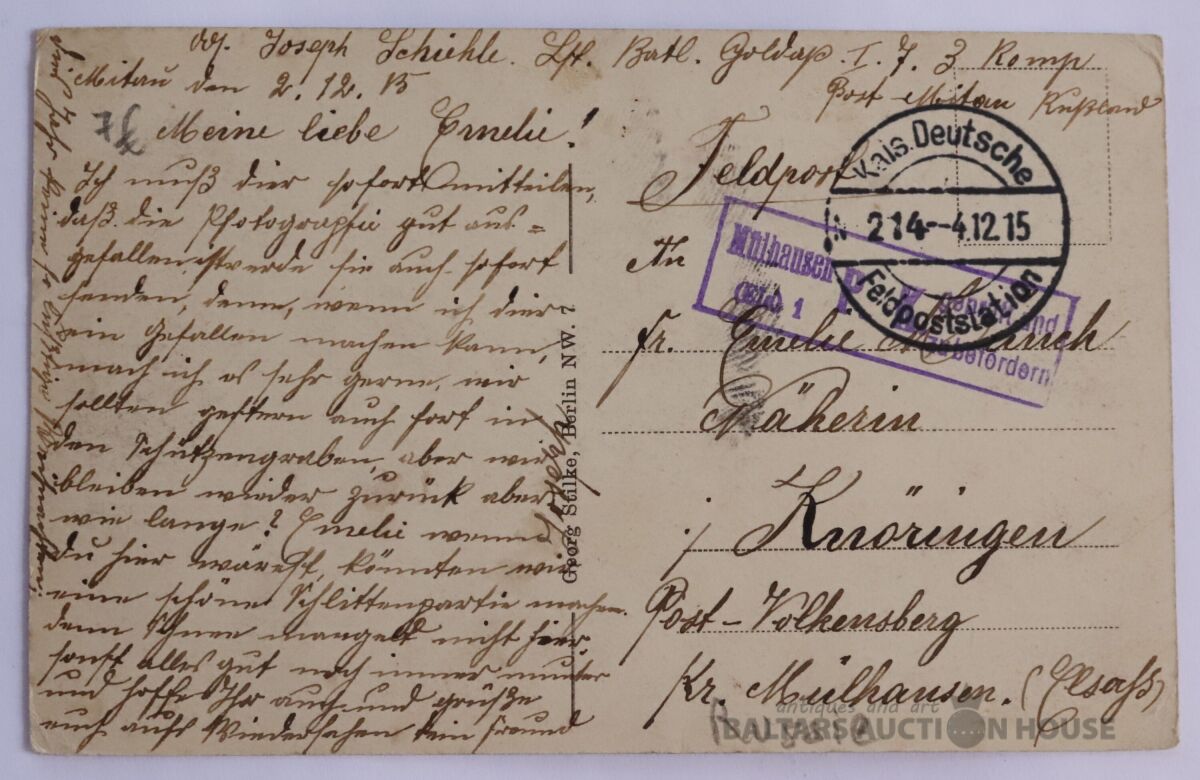 Joseph Schiehle. Lst. Batl. Goldap. I. 7. 3 Komp
Post Mitau Rußland
Mitau den 2. 12. 15
Meine liebe Emelie!
Ich muß dier sofort mitteilen,
daß die Photographie gut aus=
gefallen ist werde sie auch sofort
senden, denn, wenn ich dier
ein Gefallen machen kann,
mach ich es sehr gerne, wir
sollten gestern auch fort in
den Schützengraben, aber wir
bleiben wieder zurück aber
wie lange? Emelie wenn
du hier wärest, könnten wir
eine schöne Schlittenpartie machen.
denn Schnee mangelt nicht hier,
sonst alles gut noch immer munter
und hoffe Ihr auch und grüße
euch aufs Wiedersehen dein Freund
Joseph
Georg Stilke, Berlin NW. 7
Feldpost
Kais. Deutsche
214--4.12.15
Feldpoststation
Mülhausen
(Els.) 1
zu befördern
An
Fr. Emelie
Näherin
Knöringen
Post-Volkensberg
Kr. Mülhausen. (Elsaß)
antiques and art
BALTARS AUCTION HOUSE